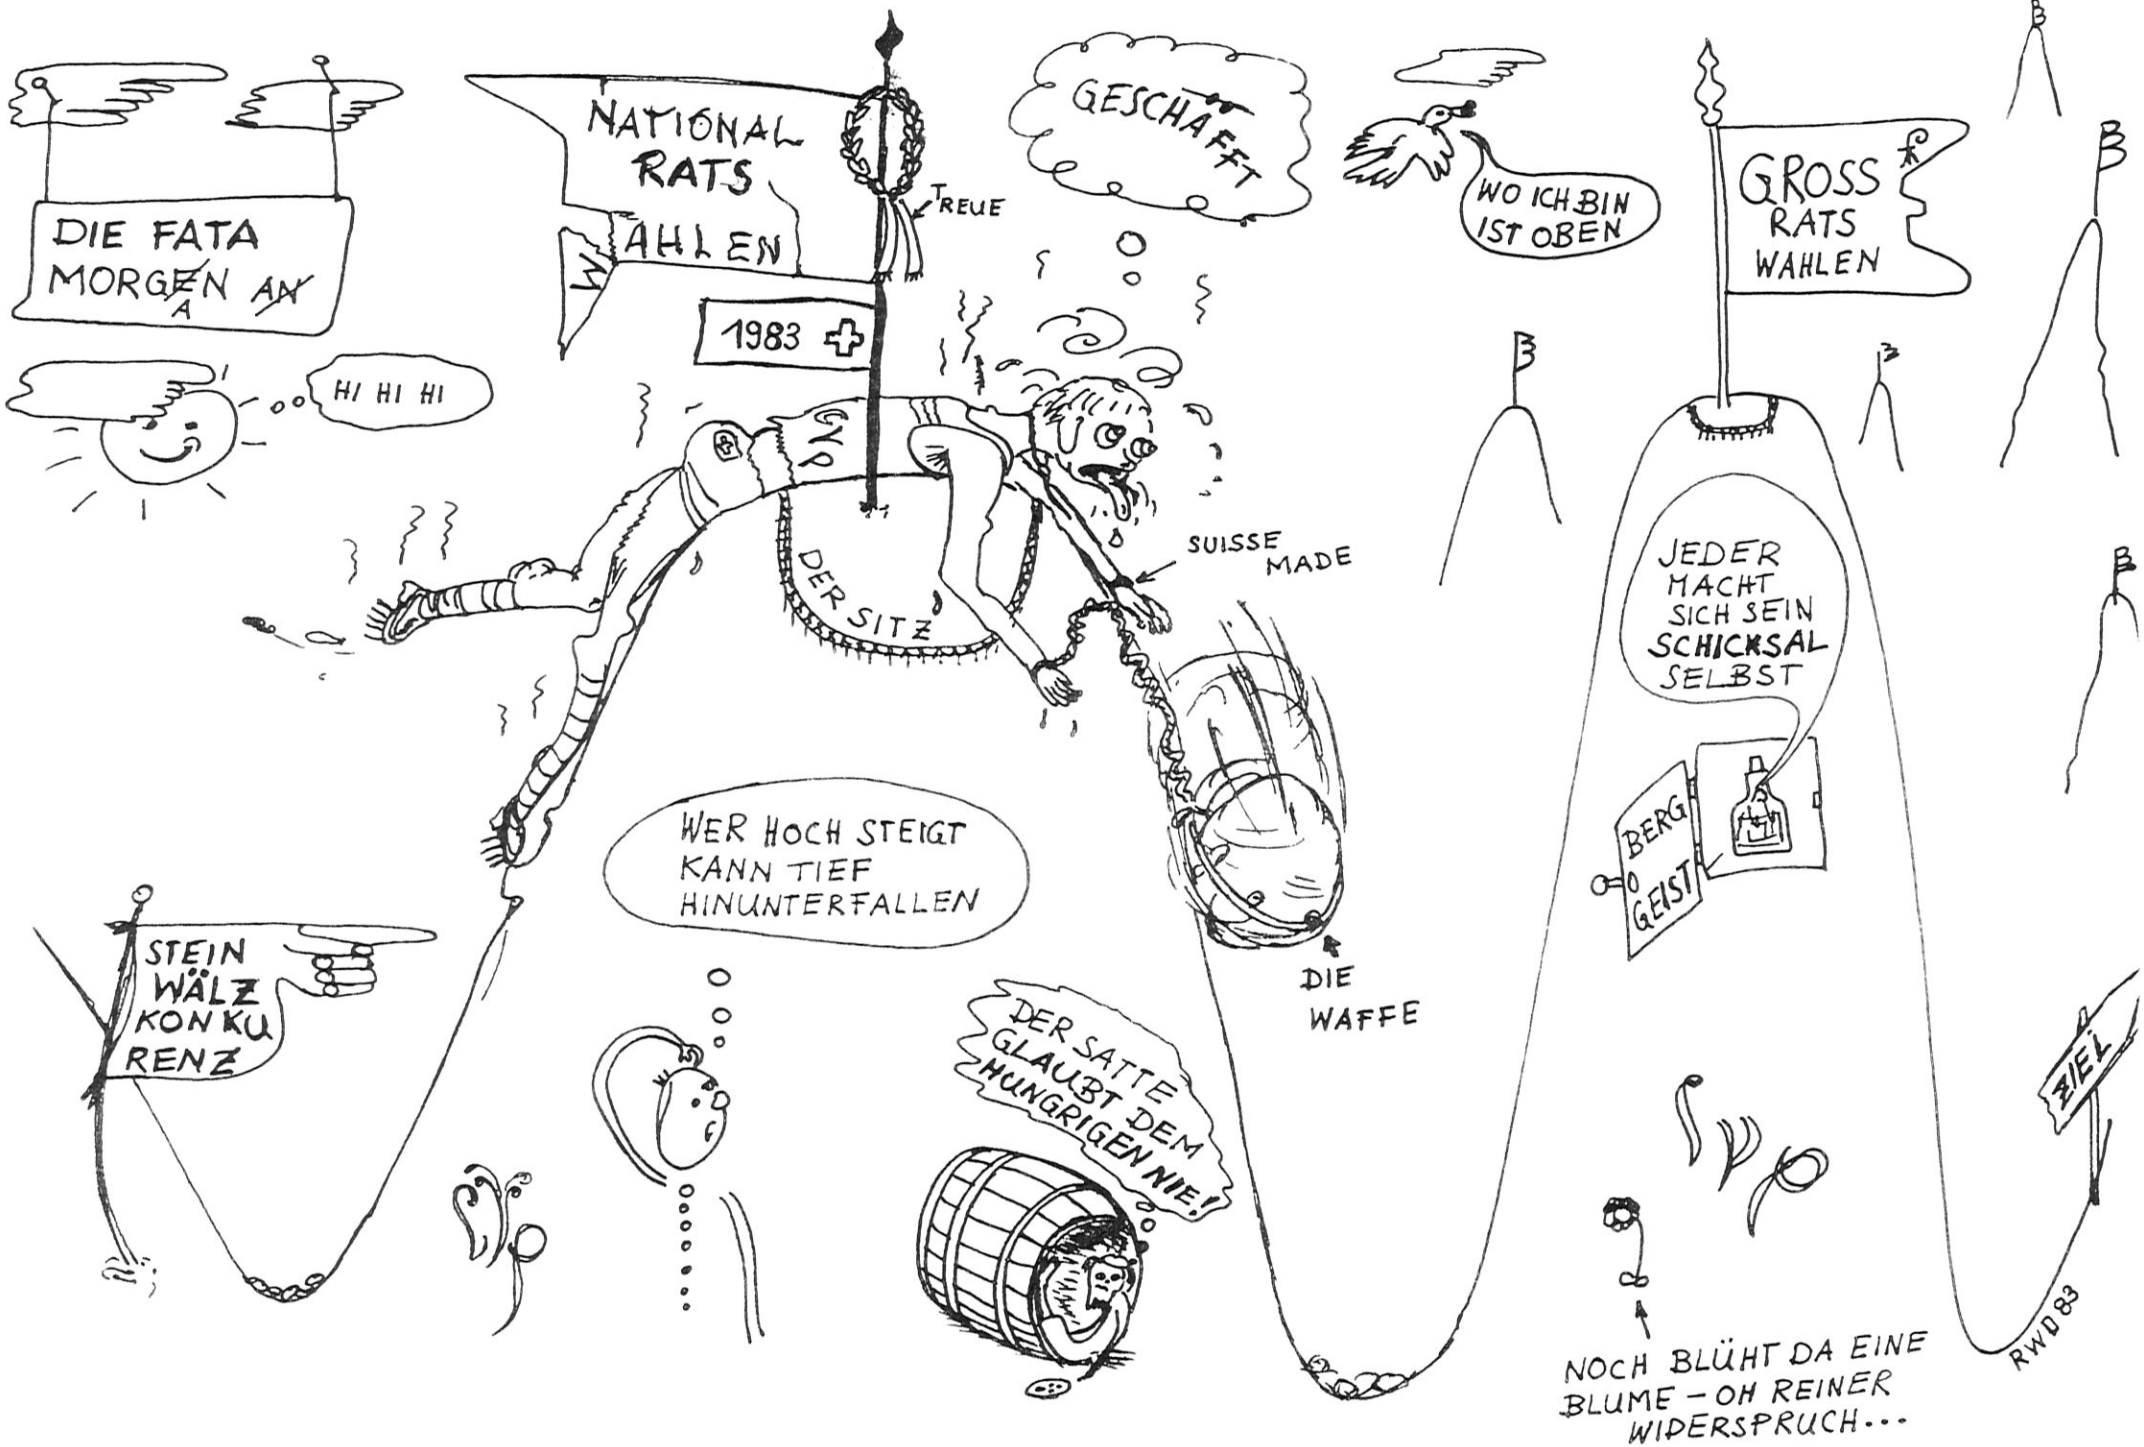 DIE FATA
MORGEN AN
A
HI HI HI
NATIONAL
RATS
WAHLEN
TREUE
1983
GESCHÄFFT
WO ICH BIN
IST OBEN
GROSS
RATS
WAHLEN
CVP
DER SITZ
SUISSE
MADE
JEDER
MACHT
SICH SEIN
SCHICKSAL
SELBST
BERG
GEIST
WER HOCH STEIGT
KANN TIEF
HINUNTERFALLEN
DIE
WAFFE
STEIN
WÄLZ
KONKU
RENZ
DER SATTE
GLAUBT DEM
HUNGRIGEN NIE!
ZIEL
NOCH BLÜHT DA EINE
BLUME - OH REINER
WIDERSPRUCH...
RWD 83